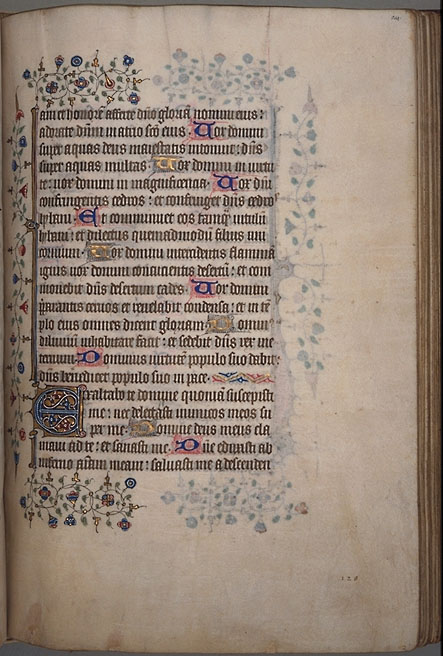 am et honorē afferte dño gloriā nomini eius:
adorate dñm in atrio sc̄o eius. Uox domini
super aquas deus maiestatis intonuit: dñs
super aquas multas. Uox domini in uirtu
te: uox domini in magnificentia. Uox dñi
confringentis cedros: et confringet dñs cedros
lybani. Et comminuet eos tamq̄ uitulū
lybani: et dilectus quemadmodū filius uni
cornium. Uox domini intercidentis flammā
ignis uox domini concutientis desertū: et com
mouebit dñs desertum cades. Uox domini
preparantis ceruos et reuelabit condensa: et in tē
plo eius omnes dicent gloriam. Dominus
diluuiū inhabitare facit: et sedebit dñs rex ine
ternum. Dominus uirtutē populo suo dabit:
dñs benedicet populo suo in pace.
Exaltabo te domine quoniā suscepisti
me: nec delectasti inimicos meos su
per me. Domine deus meus cla
maui ad te: et sanasti me. Dñe eduxisti ab
inferno aīam meam: saluasti me a descenden
128